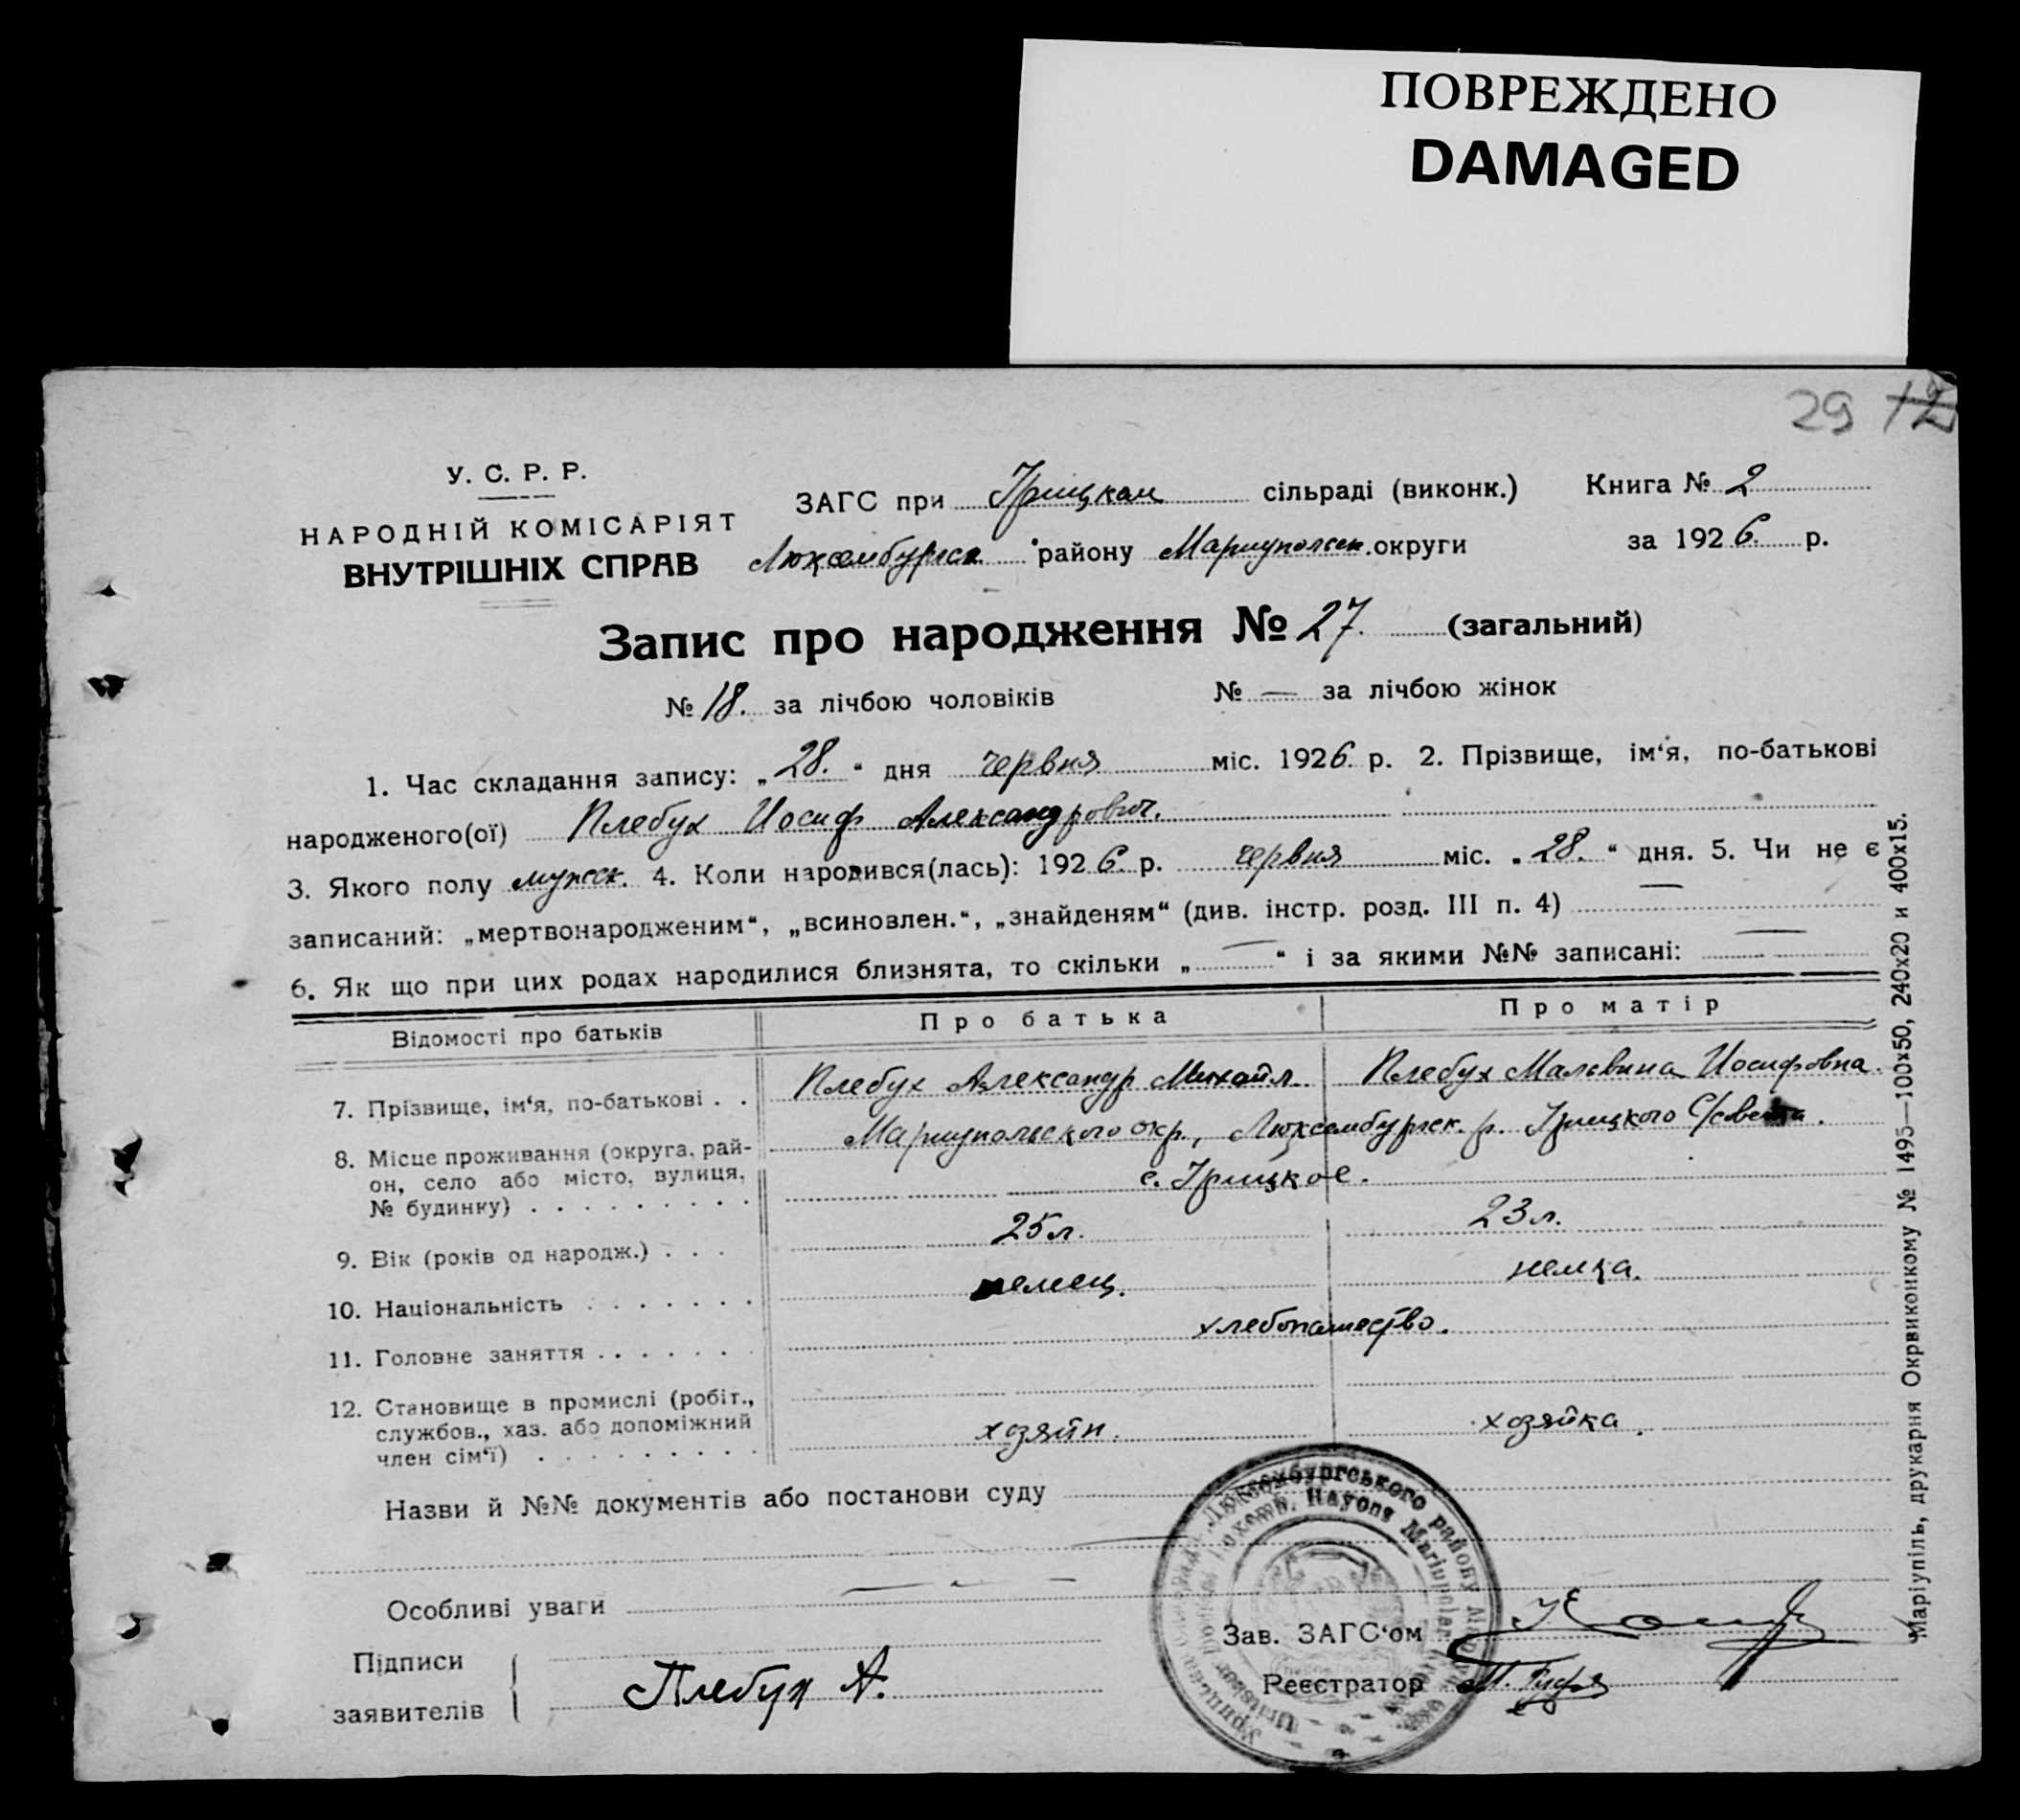 ПОВРЕЖДЕНО
DAMAGED
29 12
У. С. Р. Р.
НАРОДНІЙ КОМІСАРІЯТ
ВНУТРІШНІХ СПРАВ
ЗАГС при Урицкам сільраді (виконк.) Книга № 2
Люксембургск. району Мариупольск. округи за 1926 р.
Запис про народження № 27. (загальний)
№ 18. за лічбою чоловіків № — за лічбою жінок
1. Час складання запису: „28.“ дня червня міс. 1926 р. 2. Прізвище, ім‘я, по-батькові
народженого(ої) Плебух Иосиф Александрович.
3. Якого полу мужск. 4. Коли народився(лась): 1926 р. червня міс. „28.“ дня. 5. Чи не є
записаний: „мертвонародженим“, „всиновлен.“, „знайденям“ (див. інстр. розд. III п. 4) —
6. Як що при цих родах народилися близнята, то скільки „—“ і за якими №№ записані: —
Відомості про батьків Про батька Про матір
7. Прізвище, ім‘я, по-батькові . . Плебух Александр Михайл. Плебух Мальвина Иосифовна.
8. Місце проживання (округа, рай- Мариупольского окр., Люксембургск. р. Урицкого С/совета.
он, село або місто, вулиця, с. Урицкое.
№ будинку) . . . . . . . . .
9. Вік (років од народж.) . . . 25 л. 23 л.
10. Національність . . . . . . . немец. немка.
11. Головне заняття . . . . . . . хлебопашество.
12. Становище в промислі (робіт.,
службов., хаз. або допоміжний хозяйн. хозяйка.
член сім‘ї) . . . . . . . . .
Назви й №№ документів або постанови суду —
Особливі уваги —
Підписи
заявителів Плебух А.
Зав. ЗАГС‘ом
Реєстратор
Люксембургського району
Rayons Mariupoler
Маріупіль, друкарня Окрвиконкому № 1495—100х50, 240х20 и 400х15.